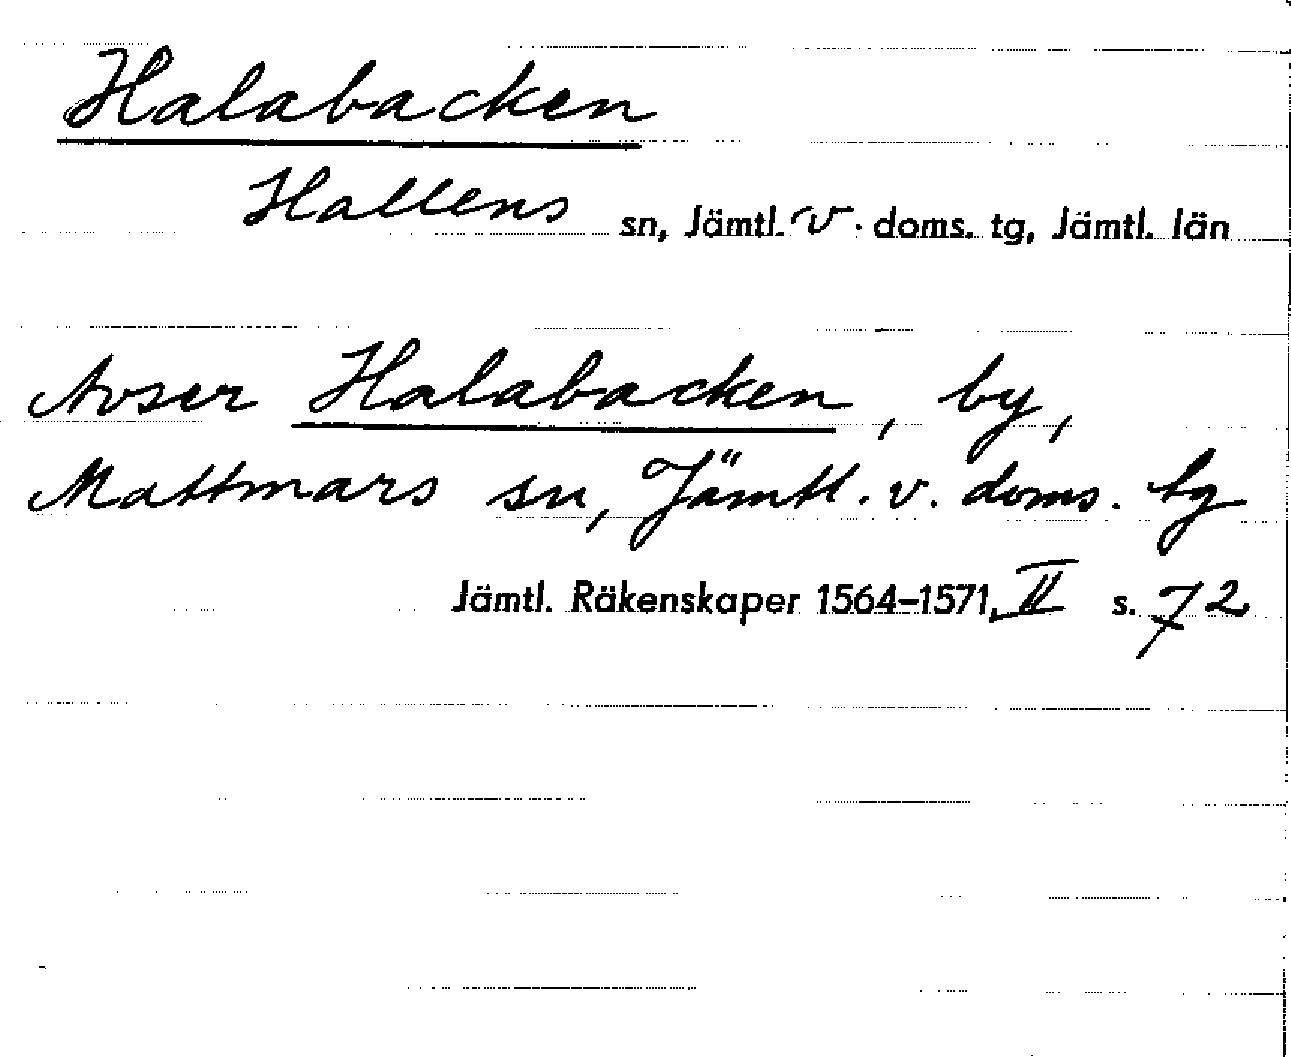 Halabacken
Hallens sn, Jämtl. v. doms. tg, Jämtl. län
Avser Halabacken, by,
Mattmars sn, Jämtl. v. doms. tg
Jämtl. Räkenskaper 1564–1571, II s. 72